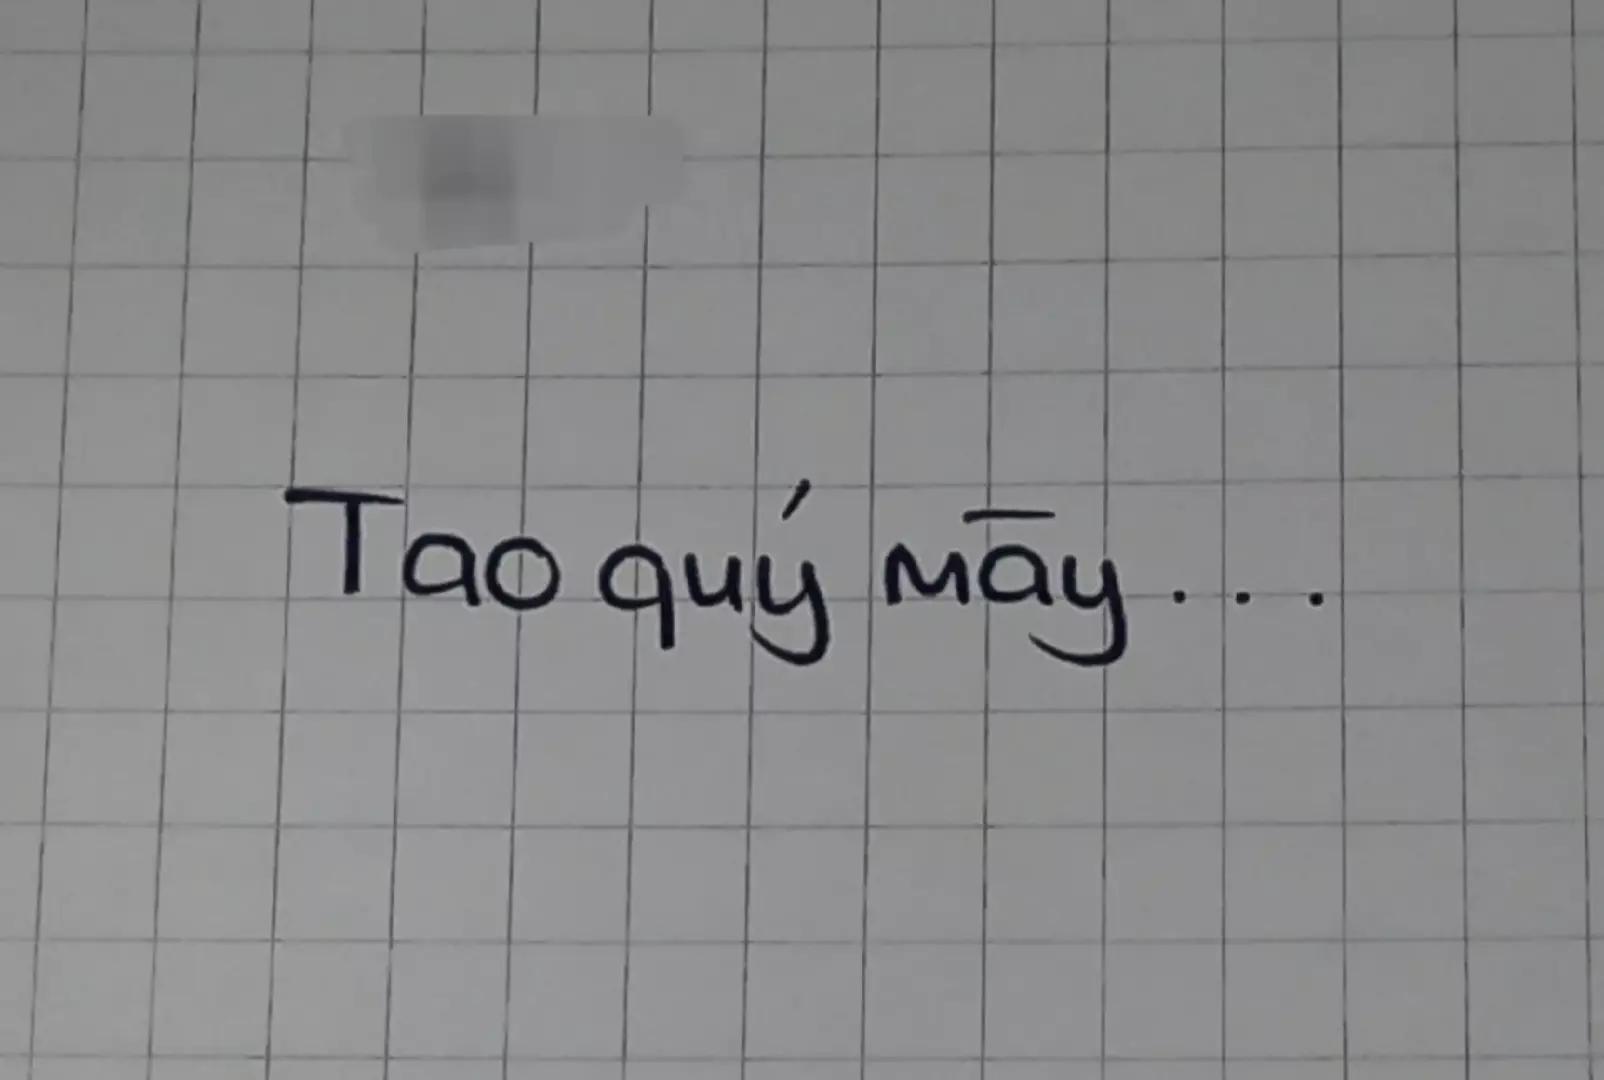 Tao quý māy...